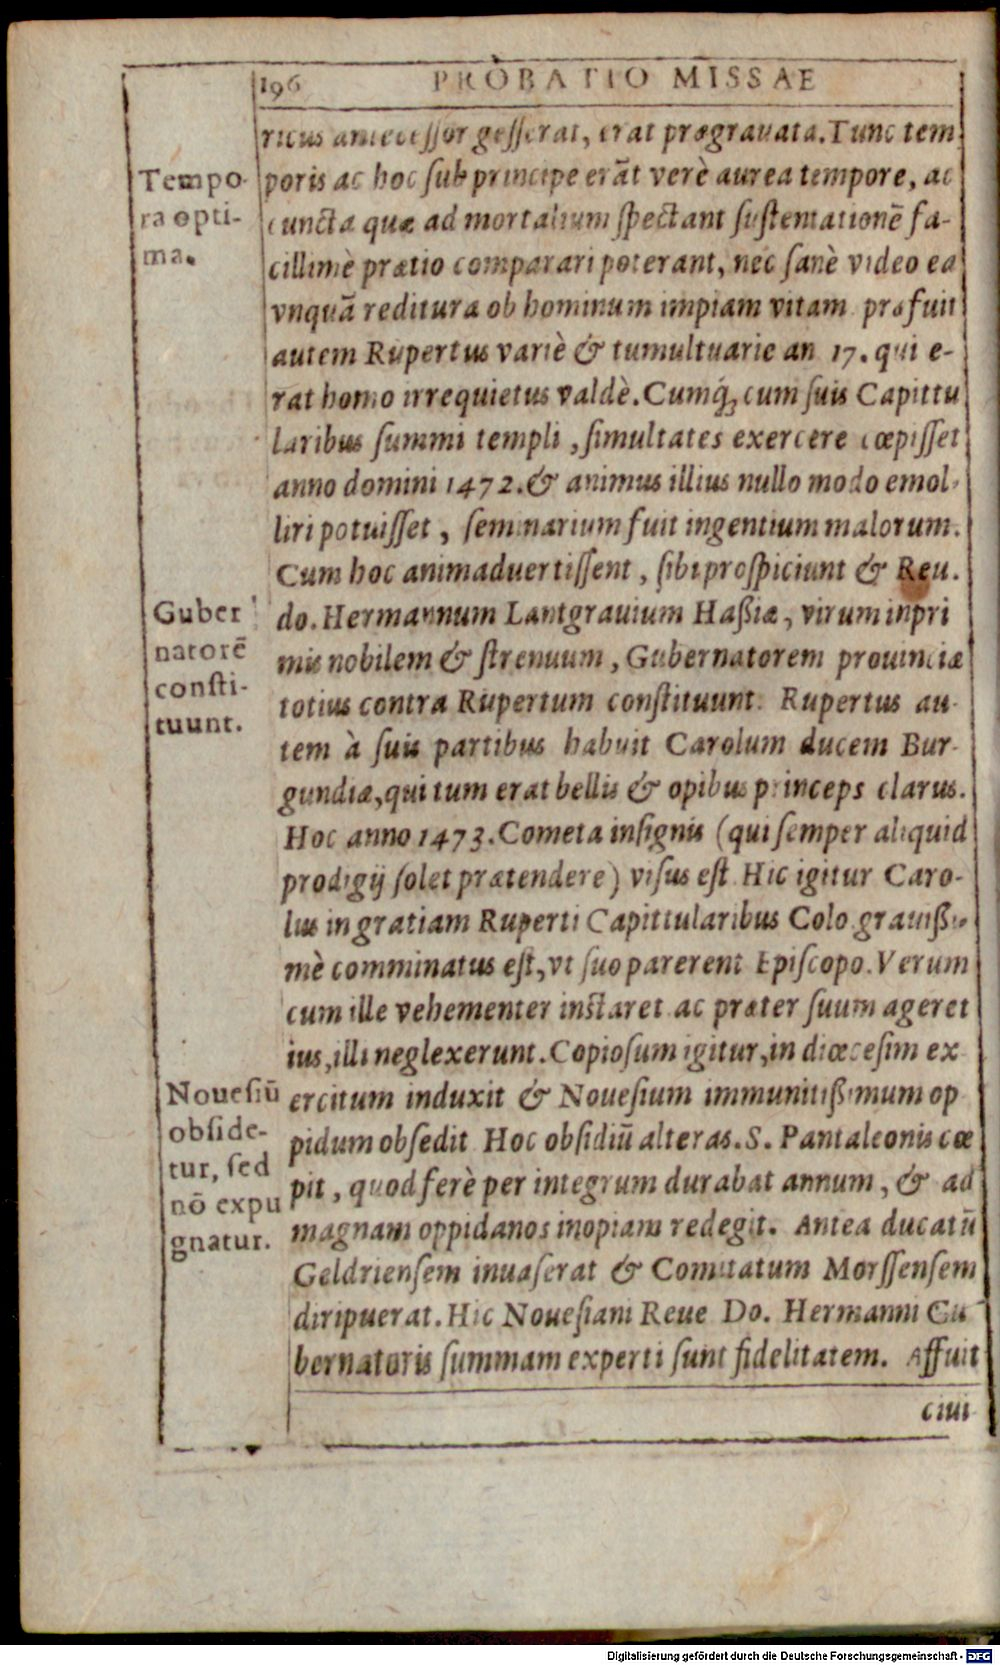 196 PROBATIO MISSAE
ricus antecessor gesserat, erat prægrauata. Tunc tem
poris ac hoc sub principe erāt verè aurea tempore, ac
cuncta quæ ad mortalium spectant sustentationē fa-
cillimè prætio comparari poterant, nec sanè video ea
vnquā reditura ob hominum impiam vitam præfuit
autem Rupertus variè & tumultuarie an 17. qui e-
rat homo irrequietus valdè. Cumq́; cum suis Capittu
laribus summi templi, simultates exercere cœpisset
anno domini 1472. & animus illius nullo modo emol-
liri potuisset, seminarium fuit ingentium malorum.
Cum hoc animaduertissent, sibi prospiciunt & Reu.
do. Hermannum Lantgrauium Haßiæ, virum inpri
mis nobilem & strenuum, Gubernatorem prouinciæ
totius contra Rupertum constituunt. Rupertus au-
tem à suis partibus habuit Carolum ducem Bur-
gundiæ, qui tum erat bellis & opibus princeps clarus.
Hoc anno 1473. Cometa insignis (qui semper aliquid
prodigij solet prætendere) visus est. Hic igitur Caro-
lus in gratiam Ruperti Capittularibus Colo. grauißi-
mè comminatus est, vt suo parerent Episcopo. Verum
cum ille vehementer instaret ac præter suum ageret
ius, illi neglexerunt. Copiosum igitur, in diœcesim ex
ercitum induxit & Nouesium immunitißimum op
pidum obsedit Hoc obsidiū alteras. S. Pantaleonis cœ
pit, quod ferè per integrum durabat annum, & ad
magnam oppidanos inopiam redegit. Antea ducatū
Geldriensem inuaserat & Comitatum Morssensem
diripuerat. Hic Nouesiani Reue Do. Hermanni Gu
bernatoris summam experti sunt fidelitatem. Affuit
ciui
Tempo-
ra opti-
ma.
Guber
natorē
consti-
tuunt.
Nouesiū
obside-
tur, sed
nō expu
gnatur.
Digitalisierung gefördert durch die Deutsche Forschungsgemeinschaft - DFG